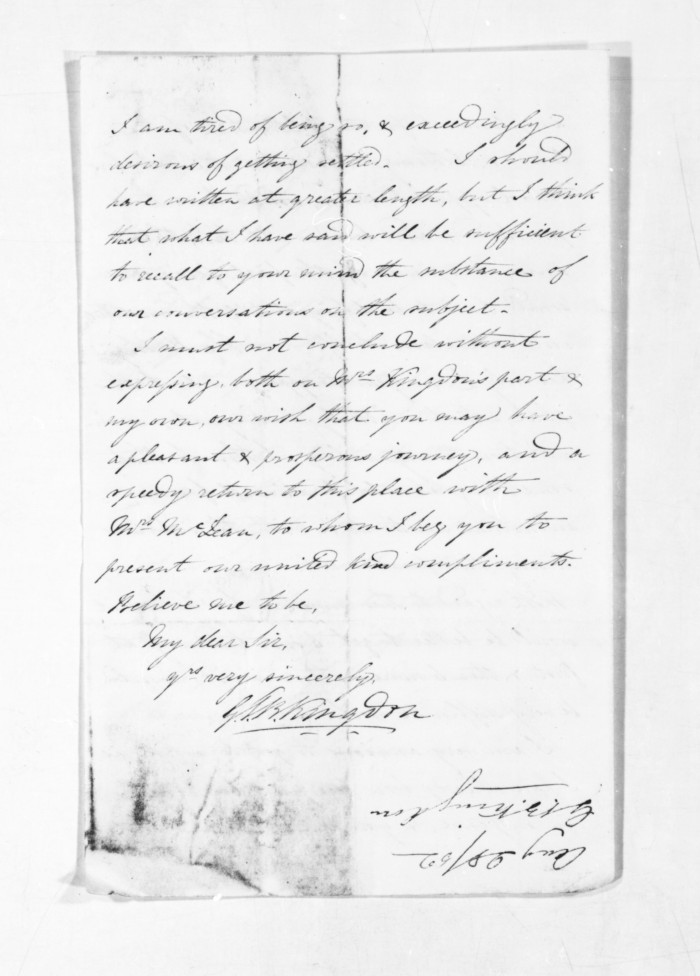 I am tired of being so, & exceedingly
desirous of getting settled. I should
have written at greater length, but I think
that what I have said will be sufficient
to recall to your mind the substance of
our conversations on the subject.
I must not conclude without
expressing, both on Mrs Kingdon's part &
my own, our wish that you may have
a pleasant & prosperous journey, and a
speedy return to this place with
Mrs McLean, to whom I beg you to
present our united kind compliments.
Believe me to be,
My dear Sir,
yrs very sincerely,
G.B. Kingdon
Kingdon
Aug 28/62